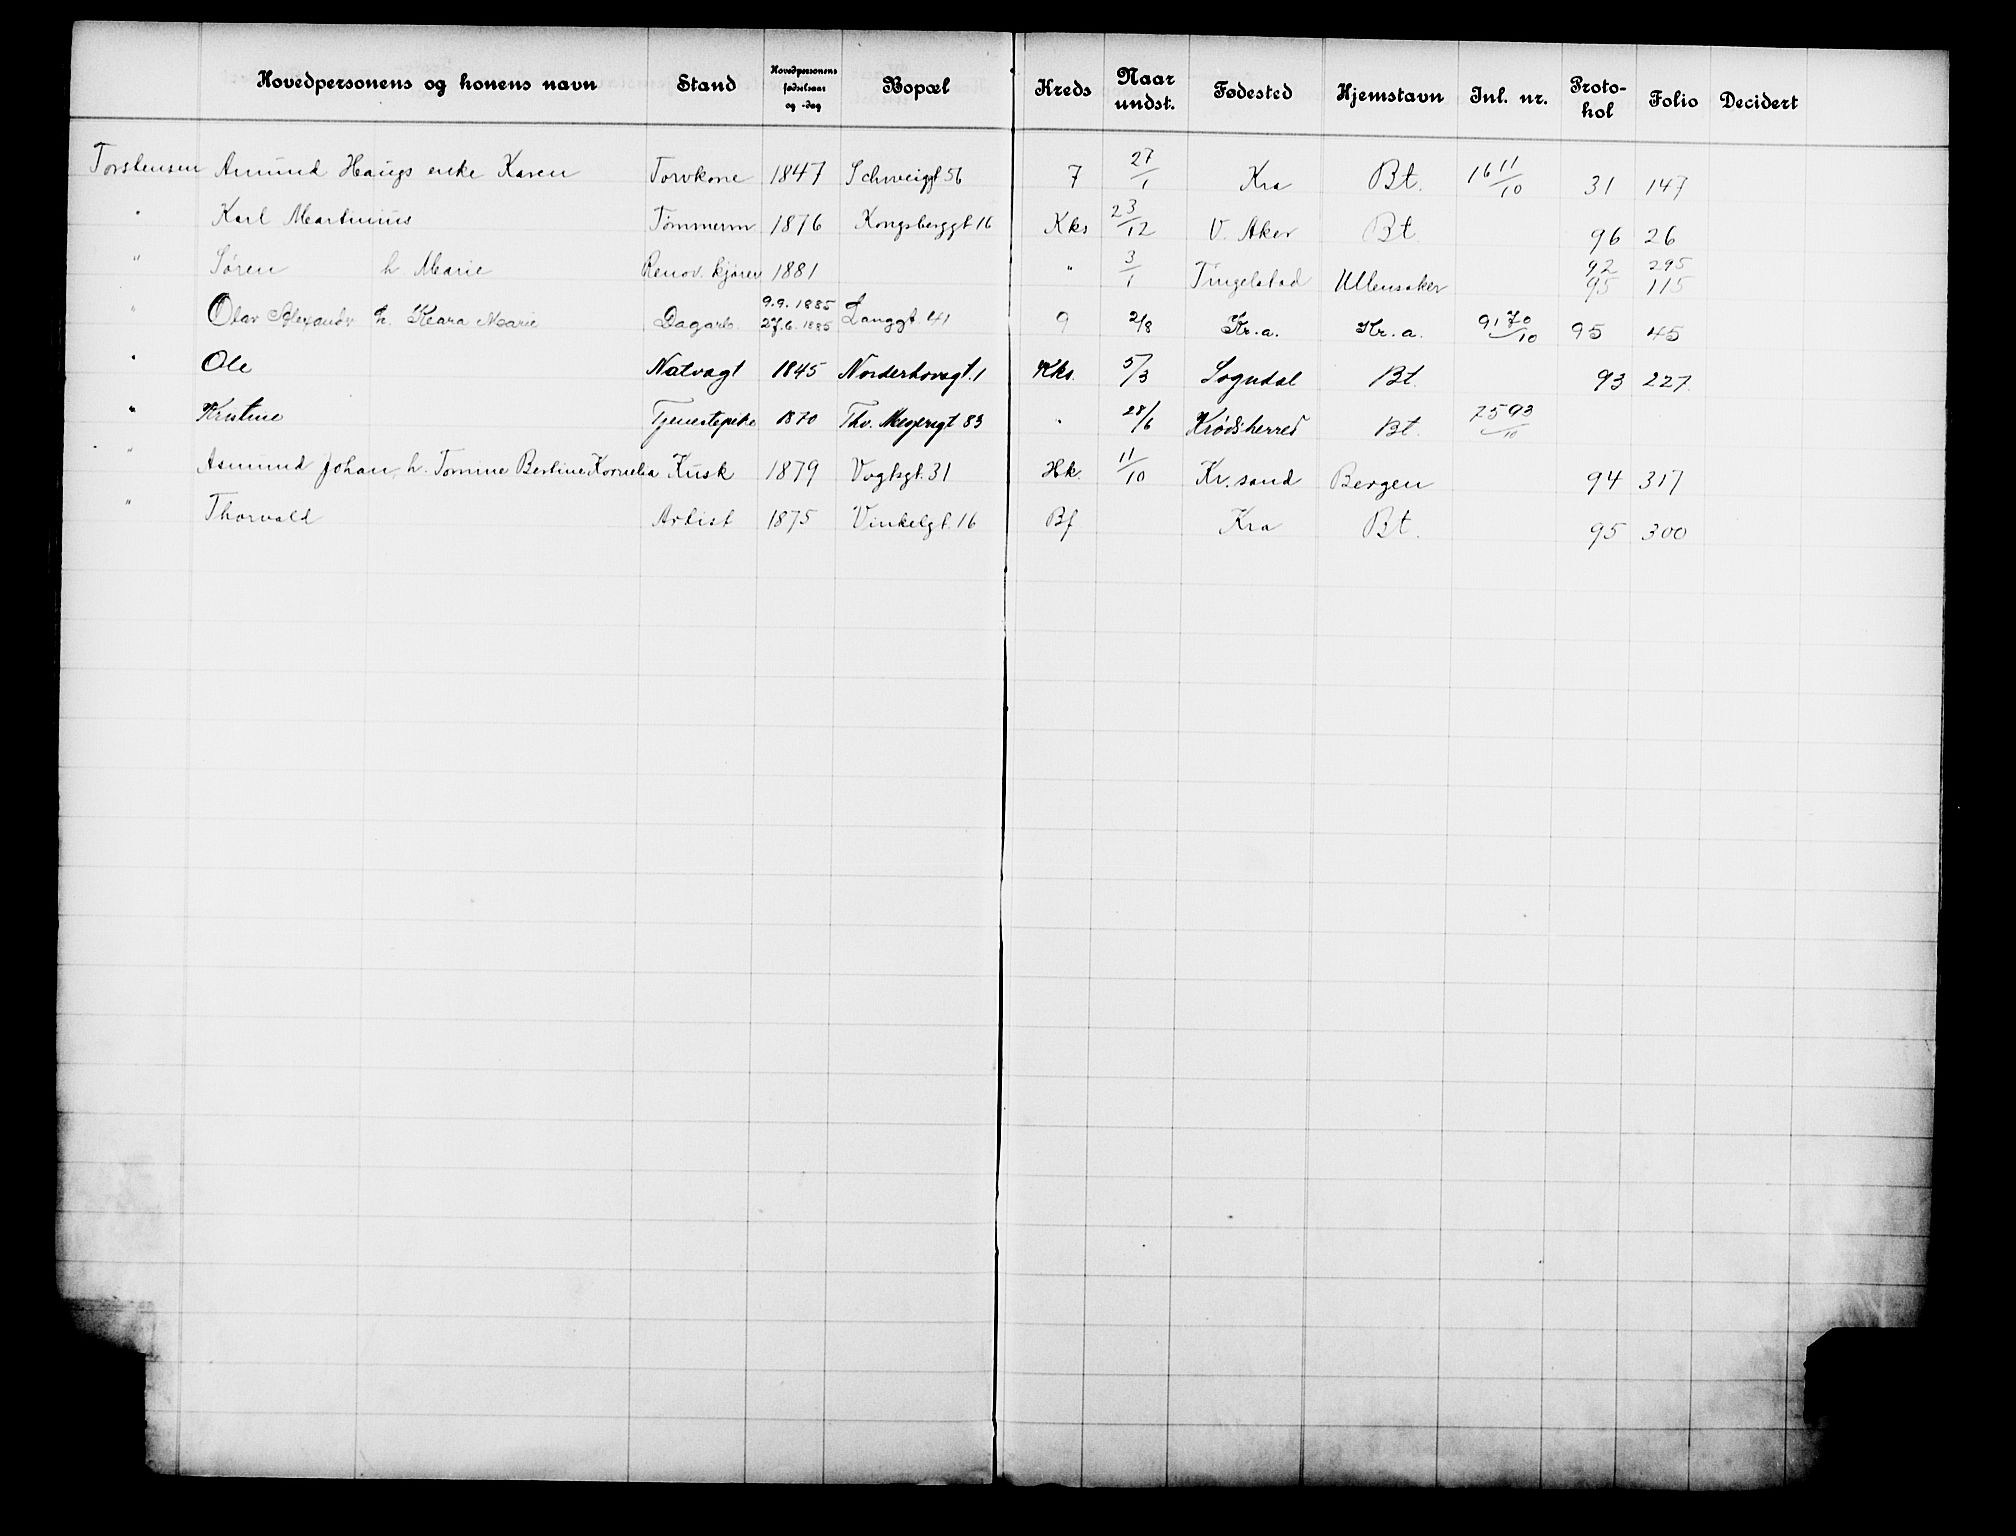 Hovedpersonens og konens navn Stand Hovedpersonens fødselsaar og -dag Bopæl Kreds Naar undst. Fødested Hjemstavn Inl. nr. Protokol Folio Decidert
Torstensen Amund Haugs enke Karen Torvkone 1847 Schweigt 56 7 27/1 Kra Bt. 16 11/10 31 147
" Karl Martinius Tømmerm 1876 Kongsberggt 16 Kks 23/12 V. Aker Bt 96 26
" Søren h Marie Renov. kjører 1881 " 3/1 Tingelstad Ullensaker 92 295
95 115
" Olav Alexander h. Klara Marie Dagarb. 9.9.1885 27.6.1885 Langgt. 41 9 2/8 Kr.a. Kr.a. 91 70/10 95 45
" Ole Natvagt 1845 Norderhovsgt. 1 Kks. 5/3 Sogndal Bt. 93 227.
" Kristine Tjenestepike 1870 Thv. Meyersgt 83 " 28/6 Krødsherred Bt. 2593/10
" Asmund Johan, h. Tomine Bertine Kornelia Kusk 1879 Vogtsgt. 31 Hk. 11/10 Kr.sand Bergen 94 317
" Thorvald Artist 1875 Vinkelgt. 16 Bf Kra Bt. 95 300